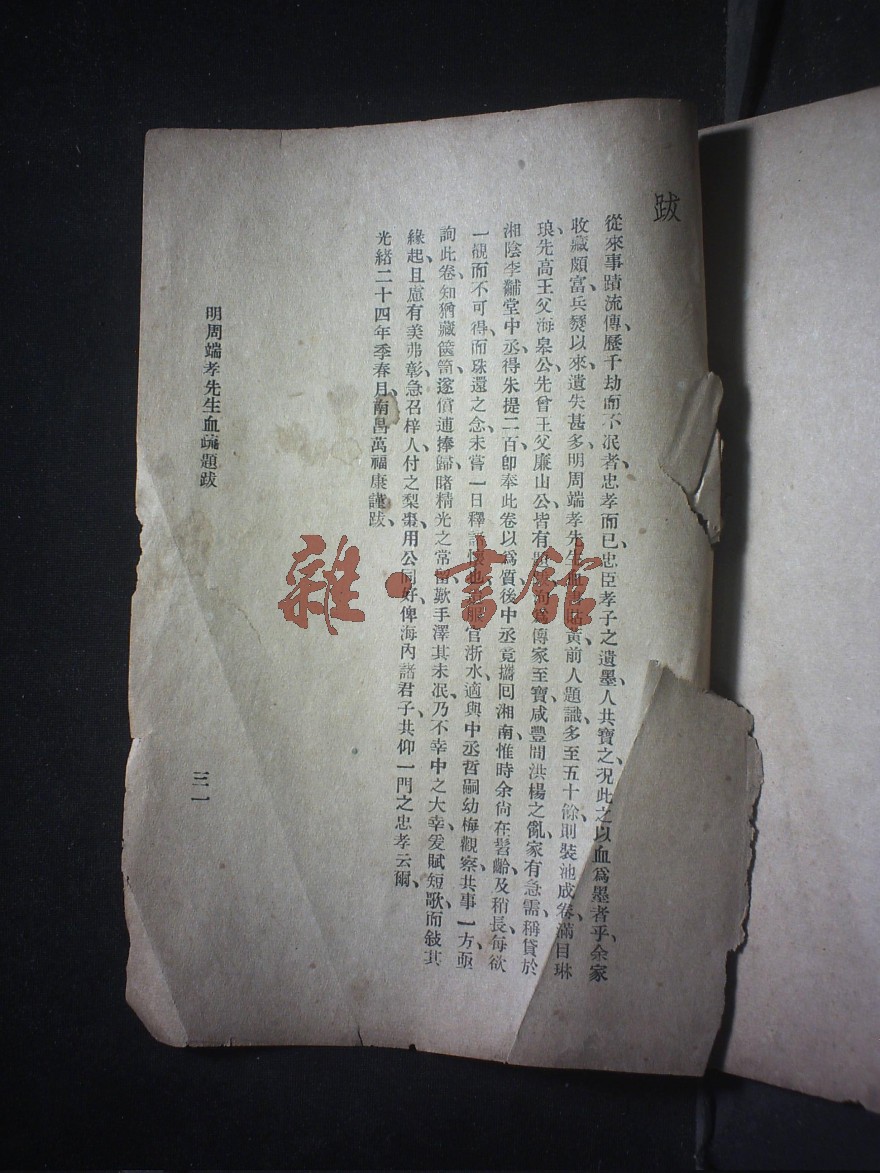 跋
從來事蹟流傳、歷千劫而不泯者、忠孝而已、忠臣孝子之遺墨、人共寶之、況此之以血爲墨者乎、余家
收藏頗富、兵燹以來、遺失甚多、明周端孝先生血書貼黃、前人題識、多至五十餘則、裝池成卷、滿目琳
琅、先高王父海皋公、先曾王父廉山公皆有題 洵爲傳家至寶、咸豐間洪楊之亂、家有急需、稱貸於
湘陰李黼堂中丞、得朱提二百、卽奉此卷以爲質、後中丞竟攜囘湘南、惟時余尙在髫齡、及稍長、每欲
一覩而不可得、而珠還之念、未嘗一日釋諸懷也、 服官浙水、適與中丞哲嗣幼梅觀察共事一方、亟
詢此卷、知猶藏篋笥、遂償逋捧歸、睹精光之常留、歎手澤其未泯、乃不幸中之大幸、爰賦短歌、而敍其
緣起、且慮有美弗彰、急召梓人、付之梨棗、用公同好、俾海內諸君子、共仰一門之忠孝云爾、
光緒二十四年季春月、南昌萬福康謹跋、
明周端孝先生血疏題跋
三一
雜·書館